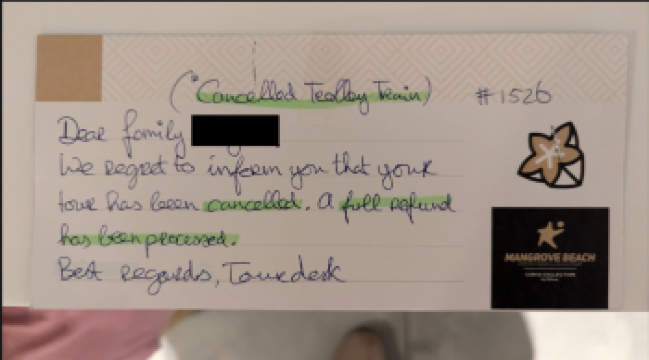 ("Cancelled Trolley Train)
#1526
Dear family
We regret to inform you that your
tour has been cancelled. A full refund
has been processed.
Best regards, Tourdesk
MANGROVE BEACH